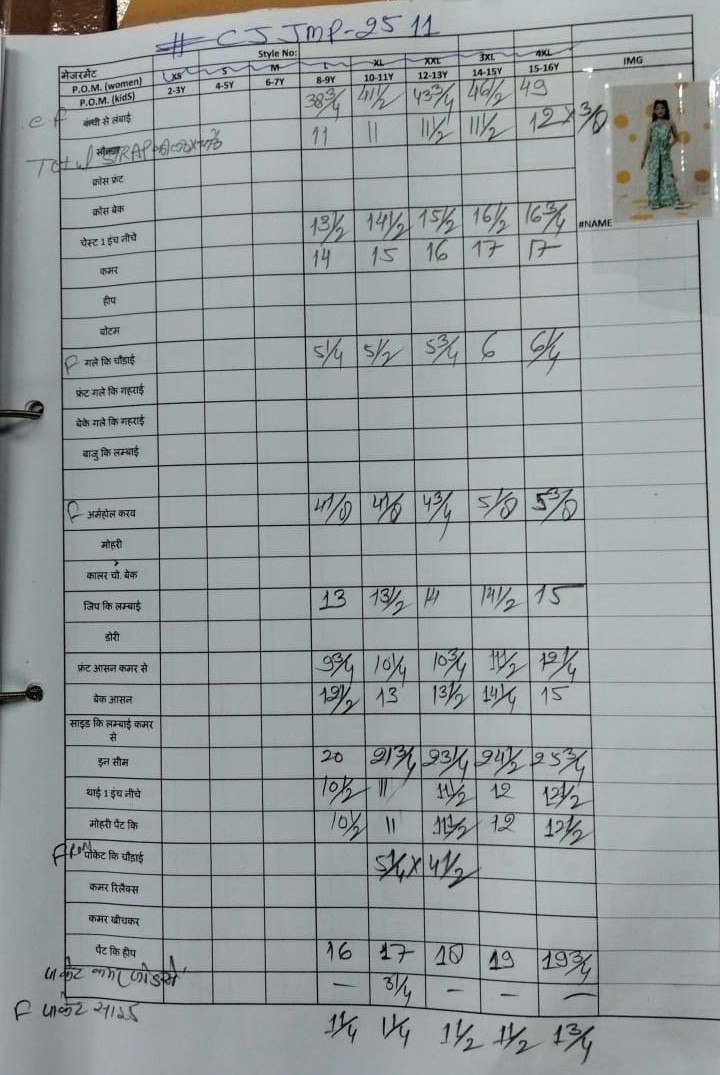 # CJJMP-2511
Style No:
मेजरमेंट XS S M L XL XXL 3XL 4XL IMG
P.O.M. (women) 2-3Y 4-5Y 6-7Y 8-9Y 10-11Y 12-13Y 14-15Y 15-16Y
P.O.M. (kidS) 38 3/4 41 1/2 43 3/4 46 1/2 49
CF कंधी से लंबाई 11 11 11 1/2 11 1/2 12 x 3/8
Total STRAP
क्रोस फ्रंट
क्रोस बेक
चेस्ट 1 इंच नीचे 13 1/2 14 1/2 15 1/2 16 1/2 16 3/4 #NAME
कमर 14 15 16 17 17
हीप
बोटम
F गले कि चौड़ाई 5 1/4 5 1/2 5 3/4 6 6 1/4
फ्रंट गले कि गहराई
बेके गले कि गहराई
बाजु कि लम्बाई
F अर्महोल करव 4 1/8 4 1/8 4 3/4 5 1/8 5 3/8
मोहरी
कालर चो. बेक
जिप कि लम्बाई 13 13 1/2 14 14 1/2 15
डोरी
फ्रंट आसन कमर से 9 3/4 10 1/4 10 3/4 11 1/2 12 1/4
बेक आसन 12 1/2 13 13 1/2 14 1/4 15
साइड कि लम्बाई कमर
से
इन सीम 20 21 3/4 23 1/4 24 1/2 25 3/4
थाई 1 इंच नीचे 10 1/2 11 11 1/2 12 12 1/2
मोहरी पेंट कि 10 1/2 11 11 1/2 12 12 1/2
FRON पोकेट कि चौड़ाई 5 1/4 x 4 1/2
कमर रिलैक्स
कमर खीचकर
पेंट कि हीप 16 17 18 19 19 3/4
पाकेट — 3 1/4 — — —
F पाकेट साइड 1 1/4 1 1/4 1 1/2 1 1/2 1 3/4